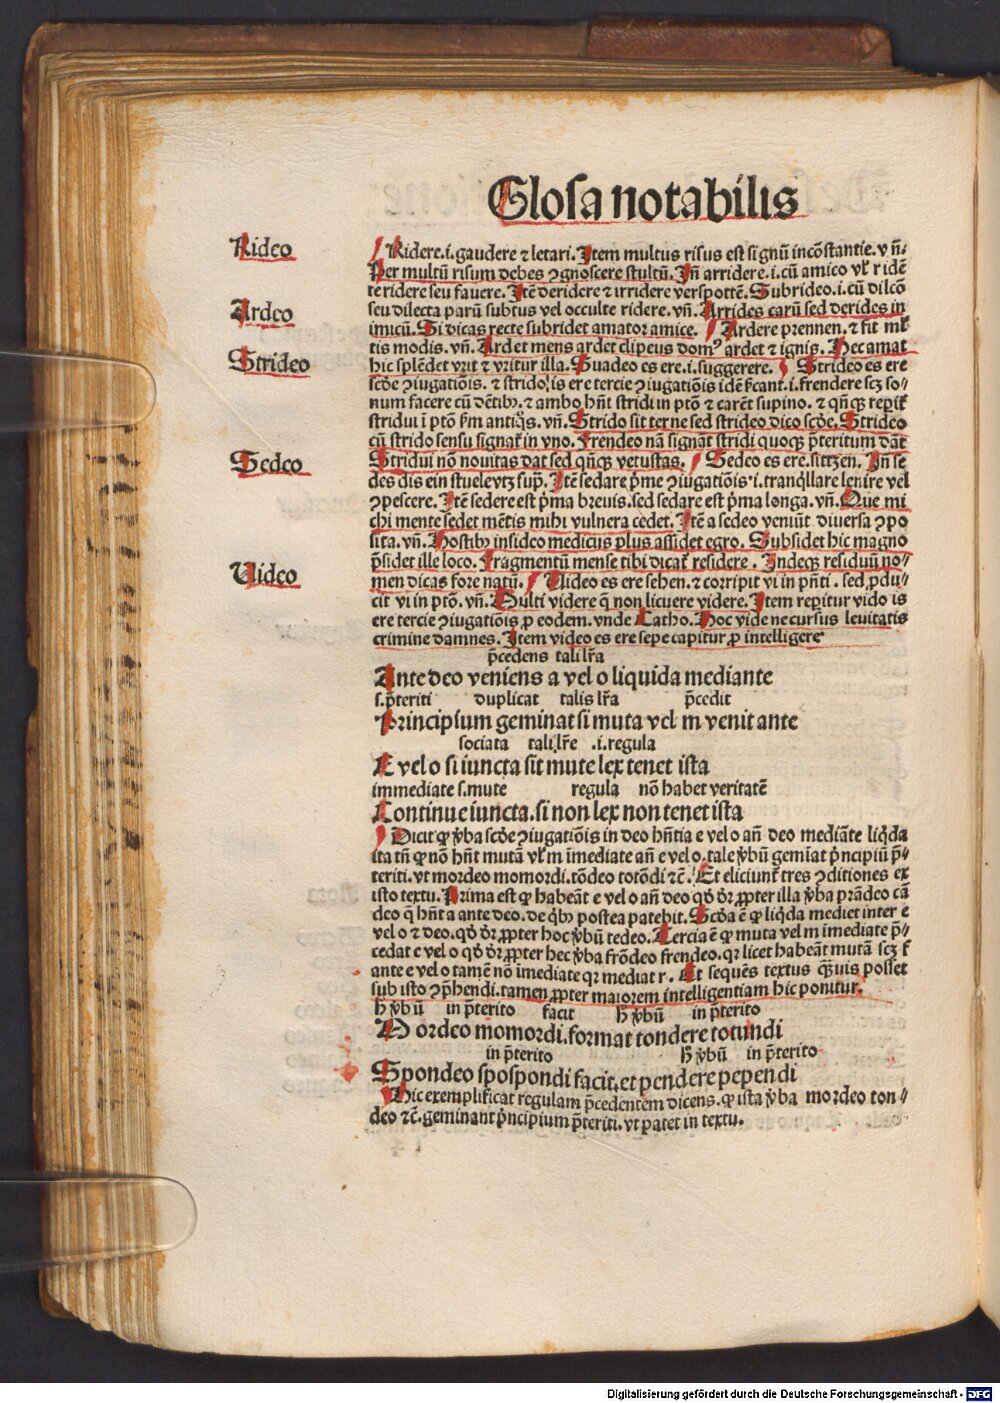 Glosa notabilis
Rideo
Ridere.i.gaudere ⁊ letari. Item multus risus est signũ incõstantie. vñ.
Per multũ risum debes ꝯgnoscere stultũ. Iñ arridere.i.cũ amico vl̓ ridẽ
te ridere seu fauere. Itẽ deridere ⁊ irridere verspottẽ. Subrideo.i.cũ dilcõ
Ardeo
seu dilecta parũ subtus vel occulte ridere. vñ. Arrides carũ sed derides in
imicũ. Si dicas recte subridet amator amice. Ardere prennen. ⁊ fit ml̓
tis modis. vñ. Ardet mens ardet clipeus domꝰ ardet ⁊ ignis. Hec amat
Strideo
hic splẽdet vrit ⁊ vritur illa. Suadeo es ere.i.suggerere. Strideo es ere
scđe ꝯiugatiõis. ⁊ strido is ere tercie ꝯiugatiõis idẽ
.i.frendere scꝫ so⸗
num facere cũ dẽtibꝰ. ⁊ ambo hñt stridi in ptõ ⁊ carẽt supino. ⁊ qñqꝫ
stridui ĩ ptõ
antiq̊s. vñ. Strido sit terne sed strideo dico scđe. Strideo
cũ strido sensu signat̉ in vno. Frendeo nã signãt stridi quoqꝫ p̃teritum dãt
Sedeo
Stridui nõ nouitas dat sed qñqꝫ vetustas. Sedeo es ere.sittzen. Iñ se
des dis ein
sup̃. Itẽ sedare p̃me ꝯiugatiõis.i.tranq̇llare lenire vel
ꝯpescere. Itẽ sedere est p̃ma breuis.sed sedare est p̃ma longa. vñ. Que mi
chi mente sedet mẽtis mihi vulnera cedet. Itẽ a sedeo veniũt diuersa ꝯpo
sita. vñ. Hostibꝰ insideo medicus plus assidet egro. Subsidet hic magno
p̃sidet ille loco. Fragmentũ mense tibi dicat̉ residere. Indeqꝫ residuũ no⸗
Uideo
men dicas fore natũ. Uideo es ere sehen. ⁊ corripit vi in p̃nti. sed ꝓdu⸗
cit vi in ptõ. vñ. Multi videre q̃ non licuere videre. Item reperitur vido is
ere tercie ꝯiugatiõis ꝓ eodem. vnde Catho. Hoc vide ne cursus leuitatis
crimine damnes. Item video es ere sepe capitur ꝓ intelligere
p̃cedens tali lr̃a
Ante deo veniens a vel o liquida mediante
s.p̃teriti duplicat talis lr̃a p̃cedit
Principium geminat si muta vel m venit ante
sociata tali lr̃e .i.regula
E vel o si iuncta sit mute lex tenet ista
immediate s.mute regula nõ habet veritatẽ
Continue iuncta.si non lex non tenet ista
Dicit ꝙ v̓ba scđe ꝯiugatiõis in deo hñtia e vel o añ deo mediãte liq̇da
ita tñ ꝙ nõ hñt mutã vl̓ m ĩmediate añ e vel o. tale v̓bũ gemĩat p̃ncipiũ p̃⸗
teriti. vt mordeo momordi. tõdeo totõdi ⁊c̃. Et eliciunt̉ tres ꝯditiones ex
isto textu. Prima est ꝙ habeãt e vel o añ deo qđ dr̃ ꝓpter illa v̓ba prãdeo cã
deo q̃ hñt a ante deo. de q̇bꝰ postea patebit. Scđa ẽ ꝙ liq̇da mediet inter e
vel o ⁊ deo. qđ dr̃ ꝓpter hoc v̓bũ tedeo. Tercia ẽ ꝙ muta vel m ĩmediate p̃⸗
cedat e vel o qđ dr̃ ꝓpter hec v̓ba frõdeo frendeo. qr licet habeãt mutã scꝫ f
ante e vel o tamẽ nõ ĩmediate qr mediat r. Et sequẽs textus q̃uis posset
sub isto ꝯp̃hendi. tamen ꝓpter maiorem intelligentiam hic ponitur.
h̓ v̓bũ in p̃terito facit h̓ v̓bũ in p̃terito
Mordeo momordi.format tondere totundi
in p̃terito h̓ v̓bũ in p̃terito
Spondeo spospondi facit.et pendere pependi
Hic exemplificat regulam p̃cedentem dicens. ꝙ ista v̓ba mordeo ton⸗
deo ⁊c̃. geminant p̃ncipium p̃teriti. vt patet in textu.
Digitalisierung gefördert durch die Deutsche Forschungsgemeinschaft - DFG